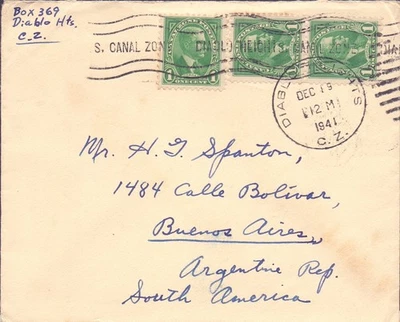 Box 369
Diablo Hts.
C.Z.
S. CANAL ZON
DIABLO HEIGHTS CANAL ZON
DIABLO HTS
DEC 19
12 M
1941
C. Z.
1 1 1
Mr. H. G. Spanton,
1484 Calle Bolívar,
Buenos Aires,
Argentine Rep.
South America